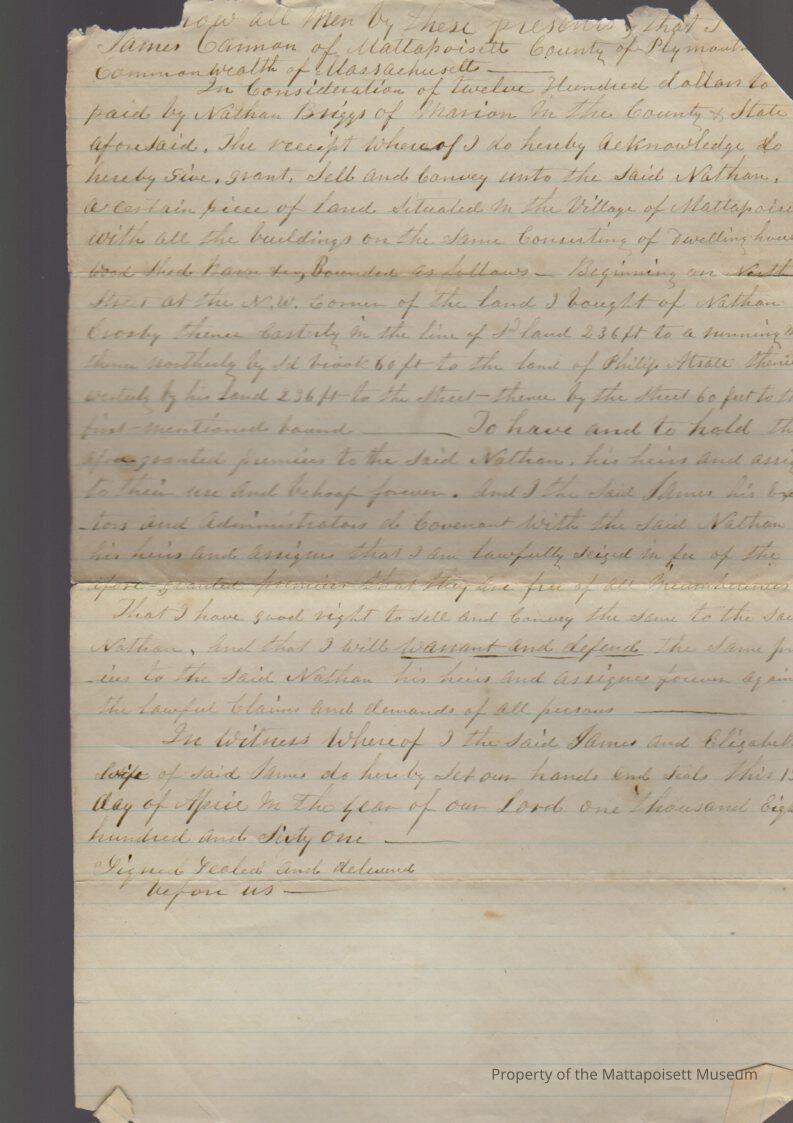 now all Men by these presents, that I
James Cannon of Mattapoisett County of Plymouth
Commonwealth of Massachusetts
In Consideration of twelve Hundred dollars to
paid by Nathan Briggs of Marion in the County & State
aforesaid, The receipt whereof I do hereby acknowledge do
hereby Give, grant, Sell and Convey unto the said Nathan,
a certain piece of land Situated in the Village of Mattapoise
with all the buildings on the same Consisting of Dwelling house
wood shed Barn &c, Bounded as follows — Beginning on North
Street at the N.W. Corner of the land I bought of Nathan
Crosby thence Easterly in the line of sd land 236 ft to a running
thence northerly by sd brook 60 ft to the land of Philip thence
westerly by his land 236 ft to the Street - thence by the Street 60 feet to th
first-mentioned bound — To have and to hold th
afore granted premises to the said Nathan, his heirs and assig
to their use and behoof forever. And I the said James his Ex
-tors and Administrators do Covenant with the said Nathan
his heirs and assigns that I am lawfully seized in fee of the
afore-granted premises that they are free of all Incumbrances
That I have good right to sell and Convey the same to the sai
Nathan, And that I will warrant and defend the same pr
-ises to the said Nathan his heirs and assigns forever again
the lawful Claims and demands of all persons
In Witness Whereof I the said James and Elizabeth
wife of said James do hereby set our hands and seals this 15
day of April in the year of our Lord one thousand Eigh
hundred and Sixty one
Signed Sealed and delivered
before us —
Property of the Mattapoisett Museum